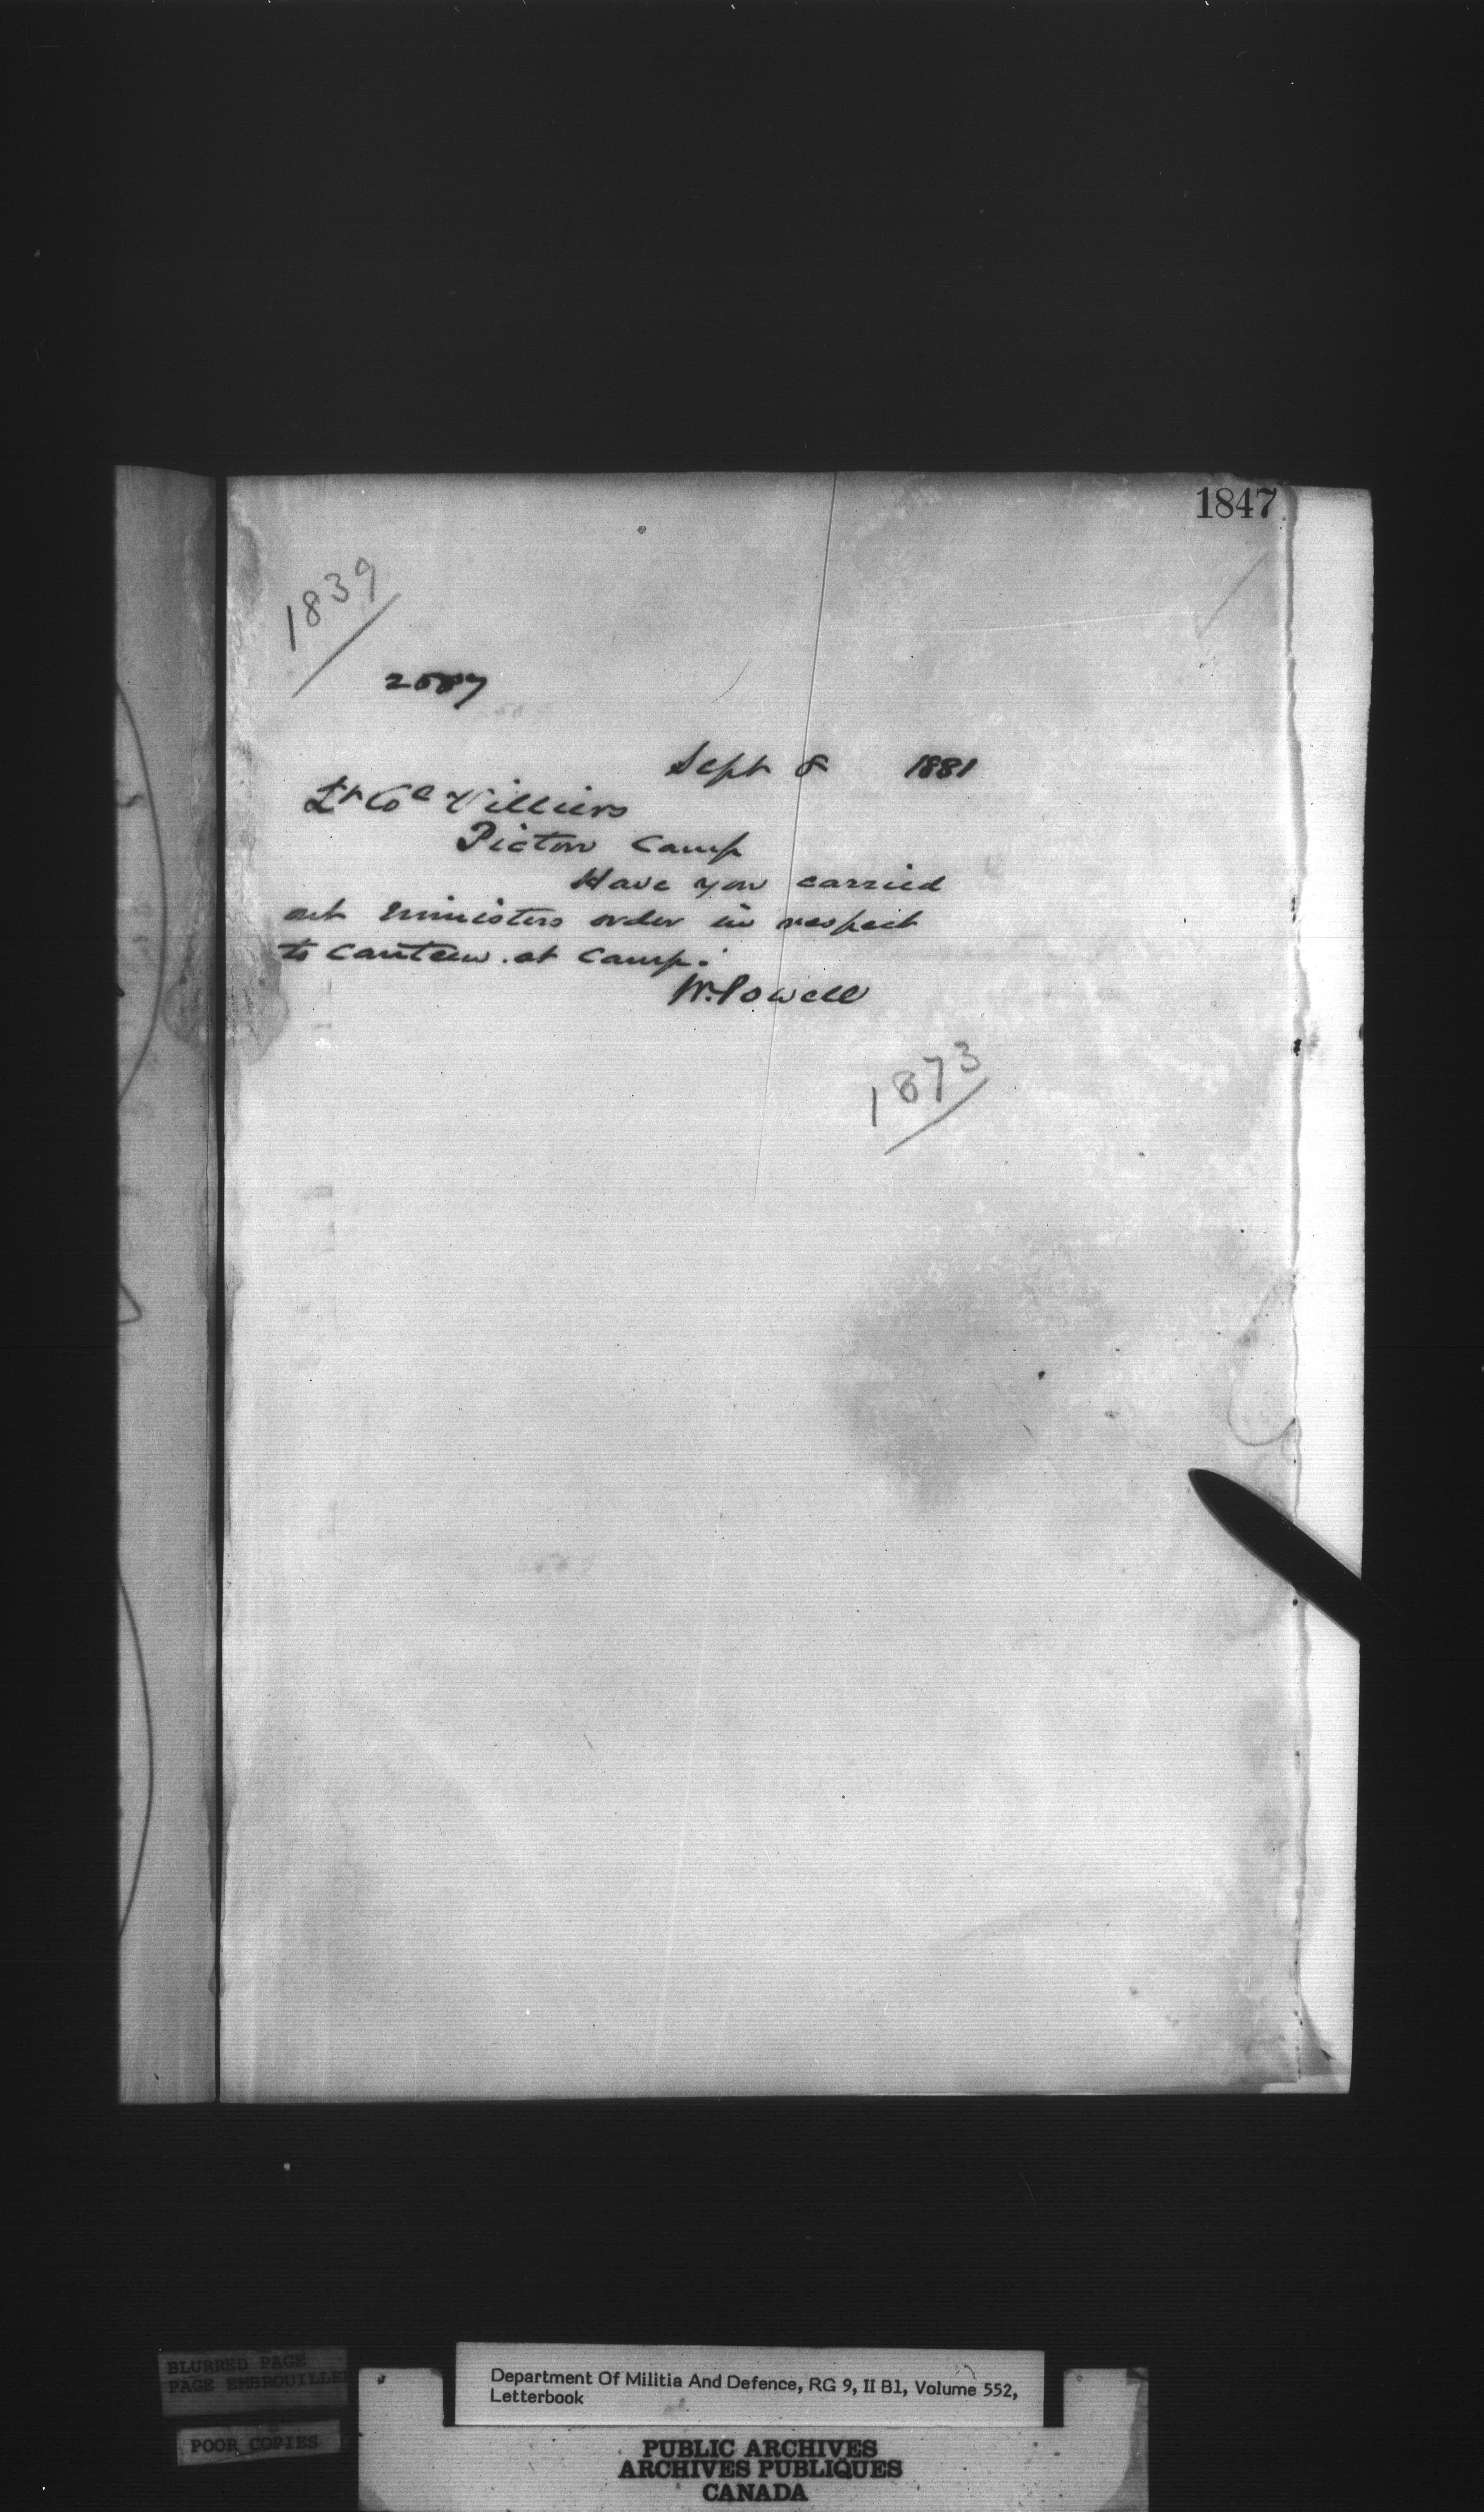 1847
1839
2557
Sept 8 1881
Lt Col Villiers
Picton Camp
Have you carried
out Ministers order in respect
to Canteen at Camp.
W. Powell
1873
BLURRED PAGE
PAGE EMBROUILLE
POOR COPIES
Department Of Militia And Defence, RG 9, II B1, Volume 552,
Letterbook
PUBLIC ARCHIVES
ARCHIVES PUBLIQUES
CANADA